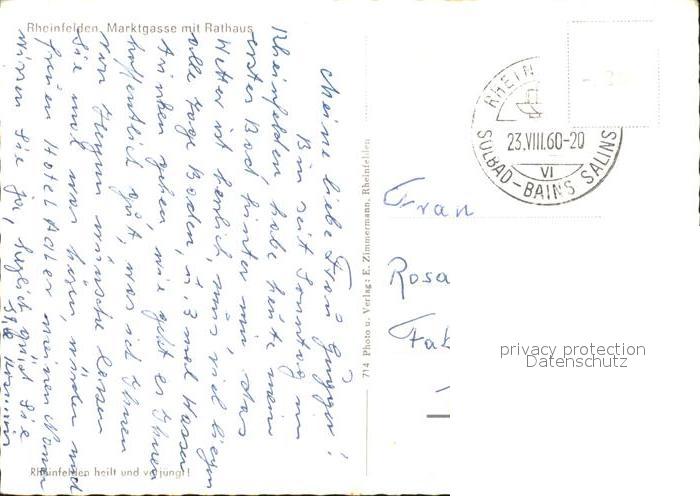 Rheinfelden, Marktgasse mit Rathaus
Meine liebe Frau
Bin seit Sonntag in
Rheinfelden habe heute mein
erstes Bad hinter mir, das
Wetter ist herrlich, muss viel liegen
alle Tage Baden, u. 3 mal Wasser
trinken gehen, wie geht es Ihnen
hoffentlich gut, was ich Ihnen
von Herzen wünsche lassen
Sie mal was hören, würden mich
freuen Hotel Adler meinen Namen
wissen Sie ja, herzlich grüsst Sie
Rheinfelden heilt und verjüngt!
714 Photo u. Verlag: E. Zimmermann, Rheinfelden
RHEIN
23.VIII.60-20
VI
SOLBAD-BAINS SALINS
Frau
Rosa
Fab
privacy protection
Datenschutz